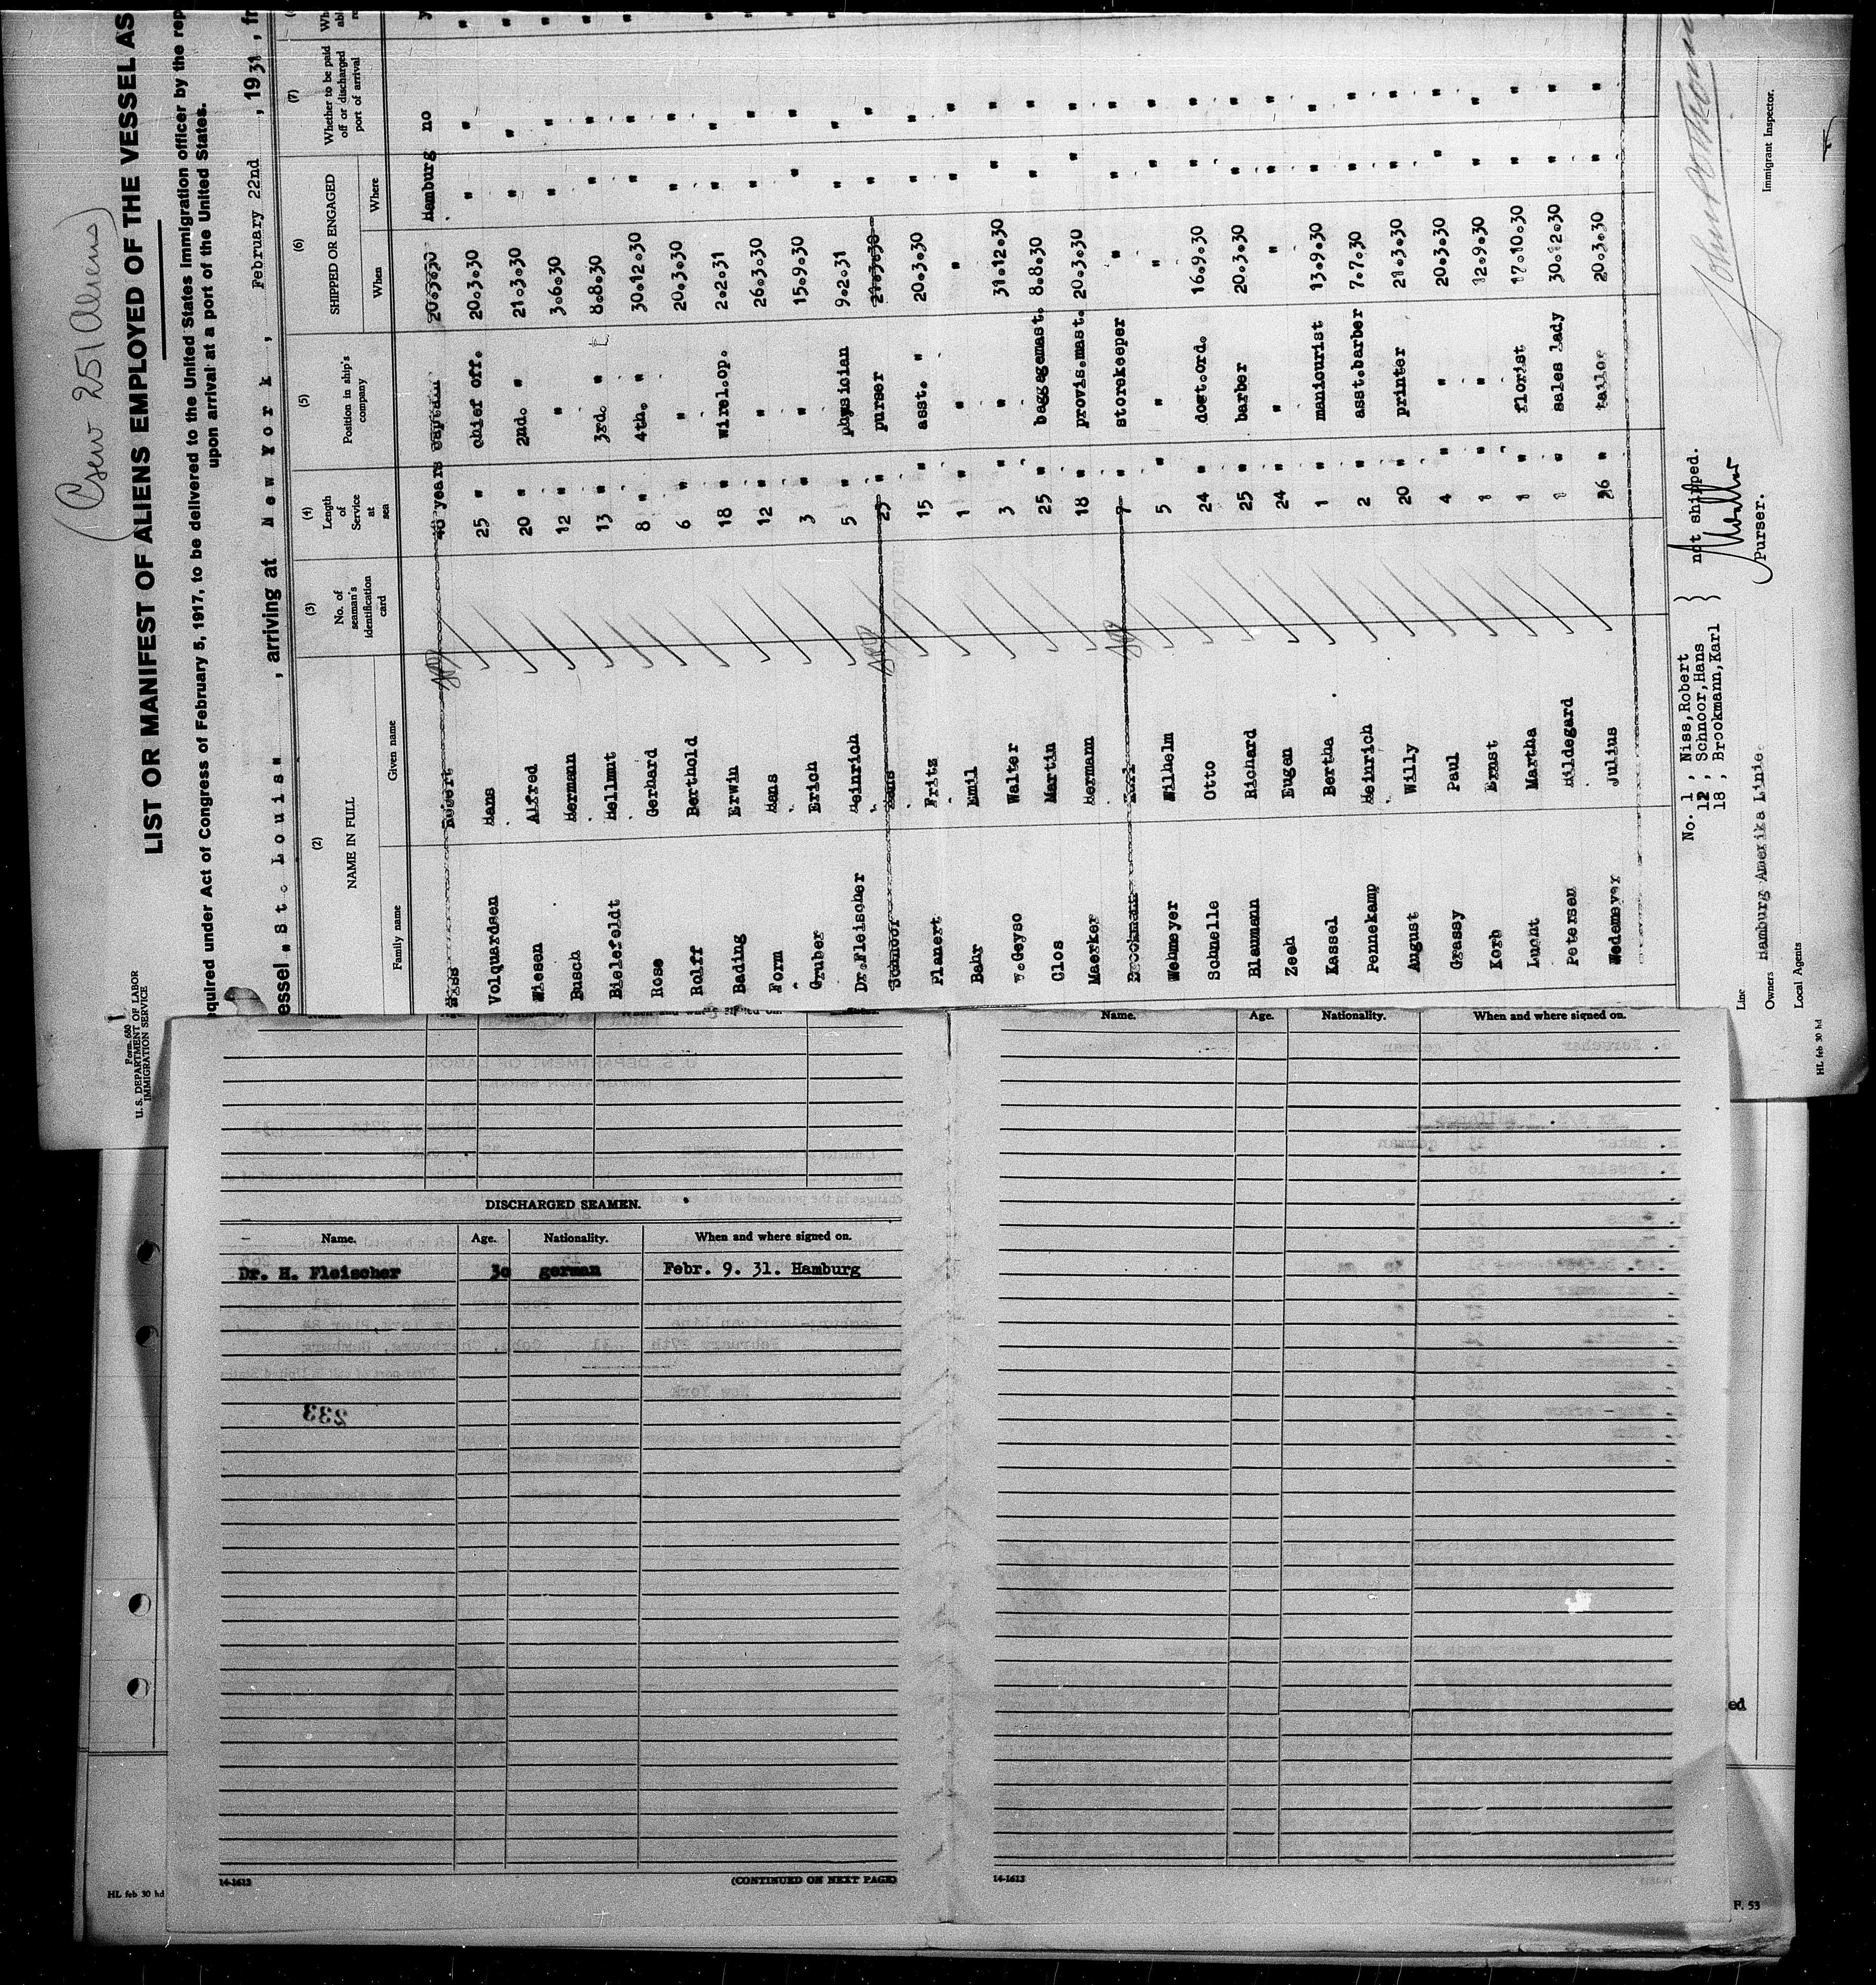 (Crew 251 Aliens)
LIST OR MANIFEST OF ALIENS EMPLOYED OF THE VESSEL AS
Form 680
U. S. DEPARTMENT OF LABOR
IMMIGRATION SERVICE
quired under Act of Congress of February 5, 1917, to be delivered to the United States immigration officer by the rep
upon arrival at a port of the United States.
essel "St. Louis" , arriving at New York , February 22nd , 1931 , fr
(2) (3) (4) (5) (6) (7)
NAME IN FULL No. of seaman's identification card Length of Service at sea Position in ship's company SHIPPED OR ENGAGED Whether to be paid off or discharged port of arrival
Family name Given name When Where
Niss Robert 40 years captain 20.3.30 Hamburg no
Volquardsen Hans 25 " chief off. 20.3.30 " "
Wiesen Alfred 20 " 2nd. " 21.3.30 " "
Busch Hermann 12 " " 3.6.30 " "
Bielefeldt Hellmut 13 " 3rd. " 8.8.30 " "
Rose Gerhard 8 " 4th. " 30.12.30 " "
Rolff Berthold 6 " " 20.3.30 " "
Bading Erwin 18 " wirel.op. 2.2.31 " "
Form Hans 12 " " 26.3.30 " "
Gruber Erich 3 " " 15.9.30 " "
Dr.Fleischer Heinrich 5 " physician 9.2.31 " "
Schnoor Hans 25 " purser 21.3.30 " "
Planert Fritz 15 " asst. " 20.3.30 " "
Bahr Emil 1 " " " " "
v.Geyso Walter 3 " " 31.12.30 " "
Clos Martin 25 " baggagemast. 8.8.30 " "
Maerker Hermann 18 " provis.mast. 20.3.30 " "
Brookmann Karl 7 " storekeeper " " "
Wehmeyer Wilhelm 5 " " " " "
Schnelle Otto 24 " doct.ord. 16.9.30 " "
Blaumann Richard 25 " barber 20.3.30 " "
Zeeh Eugen 24 " " " " "
Kassel Bertha 1 " maniourist 13.9.30 " "
Pennekamp Heinrich 2 " asst.barber 7.7.30 " "
August Willy 20 " printer 21.3.30 " "
Grassy Paul 4 " " 20.3.30 " "
Korb Ernst 1 " " 12.9.30 " "
Lucht Martha 1 " florist 17.10.30 " "
Petersen Hildegard 1 " sales lady 30.12.30 " "
Wedemeyer Julius 26 " tailor 20.3.30 " "
No. 1 , Niss,Robert
12 , Schnoor,Hans } not shipped.
18 , Brookmann,Karl
Purser.
Line
Owners Hamburg Amerika Linie
Local Agents
Immigrant Inspector.
HL feb 30 hd
Name. Age. Nationality. When and where signed on.
DISCHARGED SEAMEN.
Name. Age. Nationality. When and where signed on.
Dr. H. Fleischer 30 german Febr. 9. 31. Hamburg
233
14-1612 (CONTINUED ON NEXT PAGE)
14-1613
HL feb 30 hd
ed
F. 53